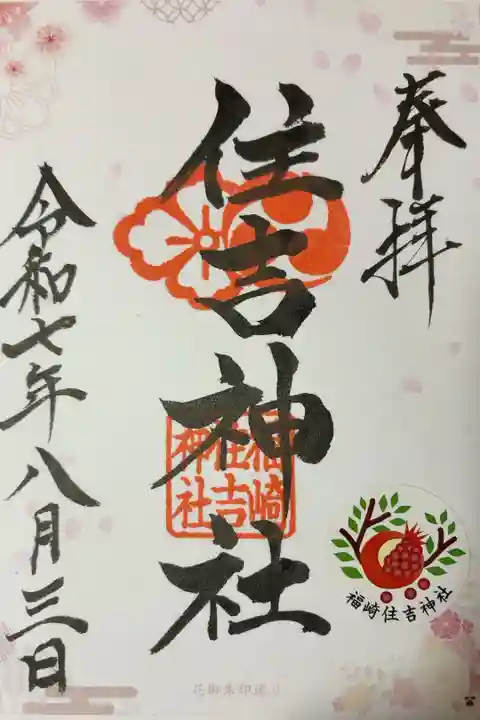 奉拝
住吉神社
福崎
住吉
神社
令和七年八月三日
福崎住吉神社
花御朱印巡り